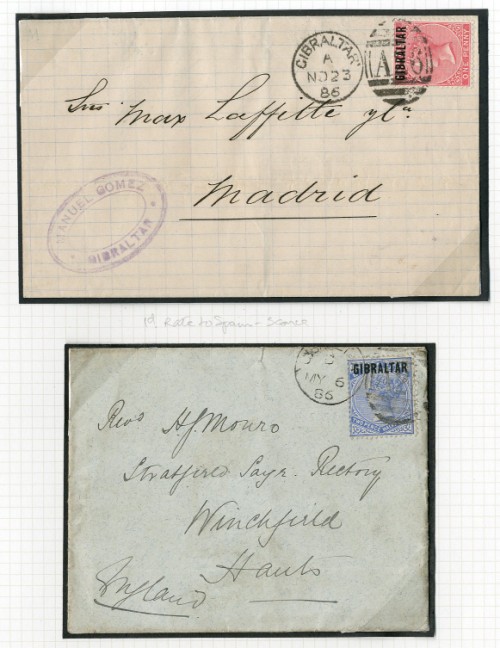 GIBRALTAR
A
NO 23
86
A 26
GIBRALTAR
ONE PENNY
Sres Max Laffitte y Ca
Madrid
MANUEL GOMEZ
GIBRALTAR
1d Rate to Spain - Scarce
MY 6
86
GIBRALTAR
Revd H. J. Monro
Stratfield Saye Rectory
Winchfield
Hants
England